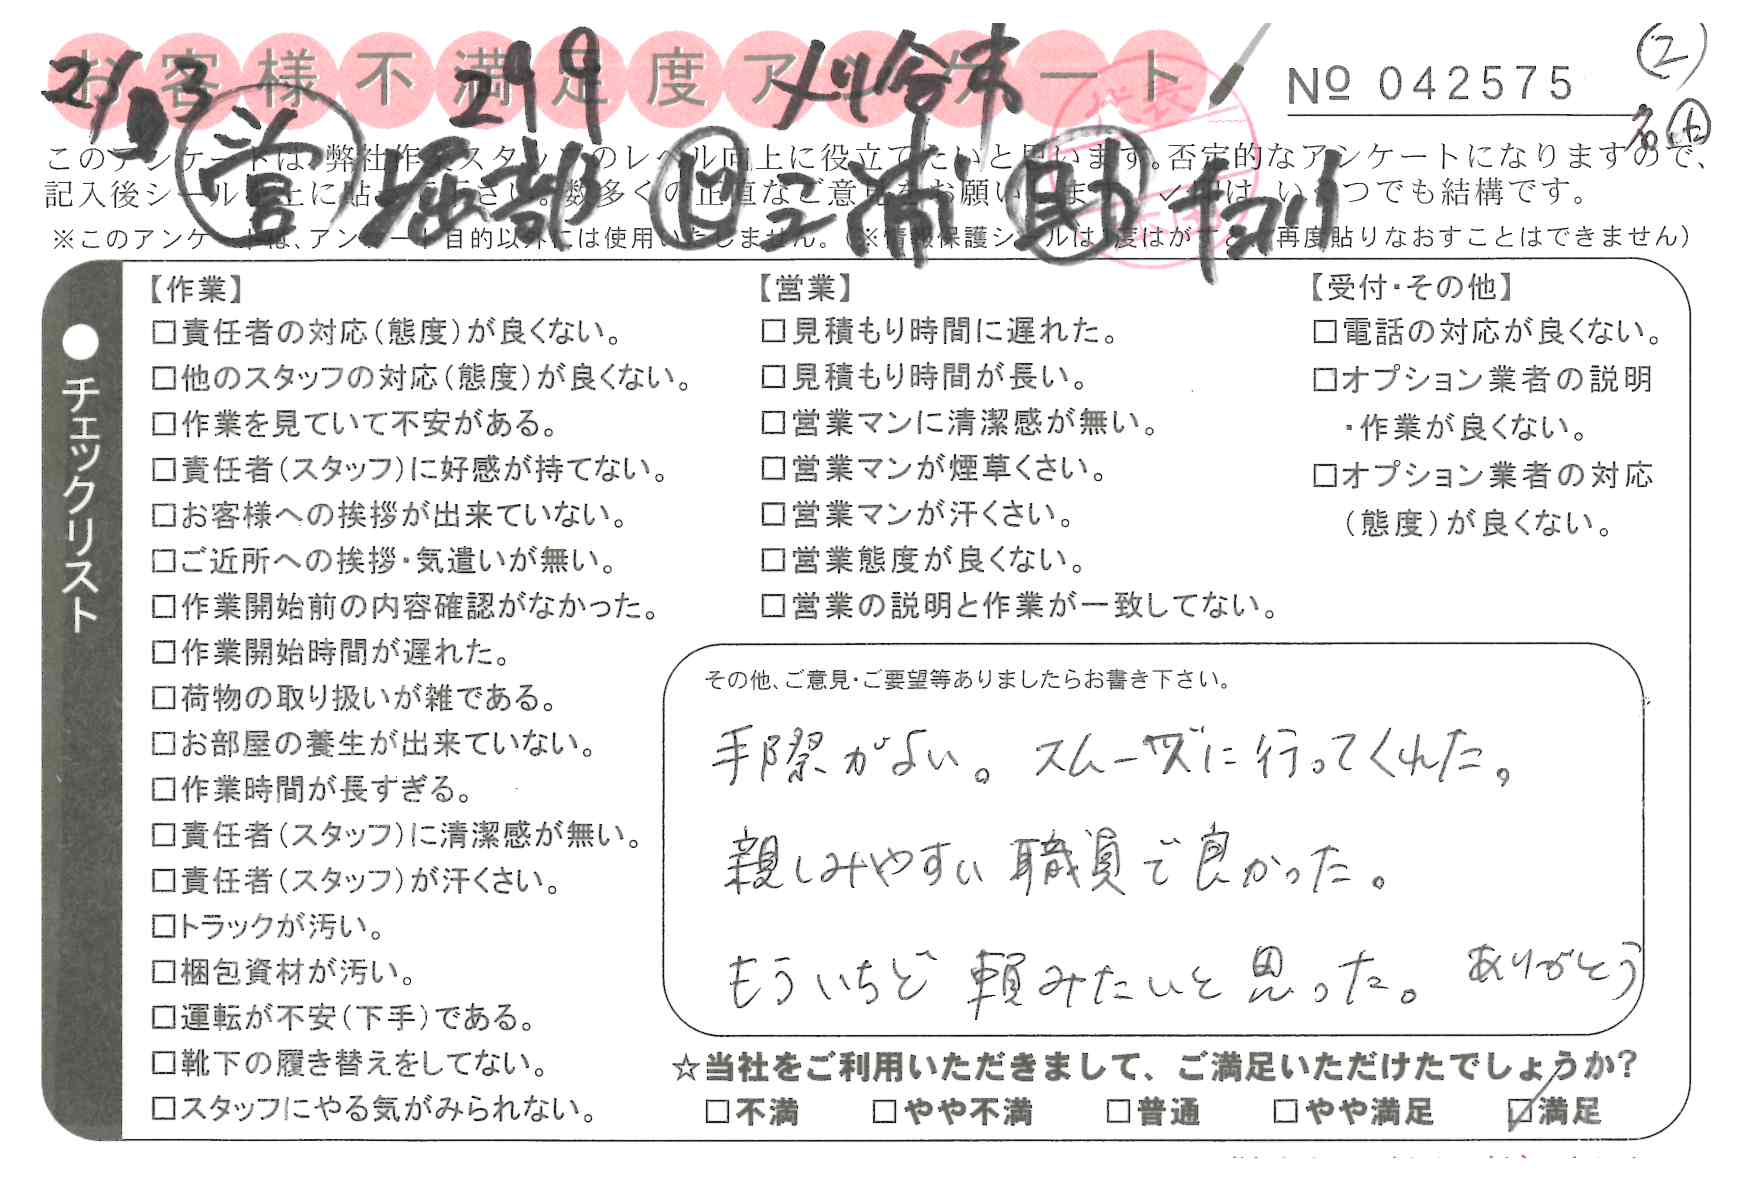 お客様不満足度アンケート
No 042575
(2)
21/ 299 刈谷市
名
営 堀部 三浦 助
このアンケートは、弊社作業スタッフのレベル向上に役立てたいと思います。否定的なアンケートになりますので、
記入後シールを上に貼って下さい。数多くの正直なご意見をお願いします。✓印は、いくつでも結構です。
※このアンケートは、アンケート目的以外には使用いたしません。(※情報保護シールは1度はがすと、再度貼りなおすことはできません)
●チェックリスト
【作業】
□責任者の対応(態度)が良くない。
□他のスタッフの対応(態度)が良くない。
□作業を見ていて不安がある。
□責任者(スタッフ)に好感が持てない。
□お客様への挨拶が出来ていない。
□ご近所への挨拶・気遣いが無い。
□作業開始前の内容確認がなかった。
□作業開始時間が遅れた。
□荷物の取り扱いが雑である。
□お部屋の養生が出来ていない。
□作業時間が長すぎる。
□責任者(スタッフ)に清潔感が無い。
□責任者(スタッフ)が汗くさい。
□トラックが汚い。
□梱包資材が汚い。
□運転が不安(下手)である。
□靴下の履き替えをしてない。
□スタッフにやる気がみられない。
【営業】
□見積もり時間に遅れた。
□見積もり時間が長い。
□営業マンに清潔感が無い。
□営業マンが煙草くさい。
□営業マンが汗くさい。
□営業態度が良くない。
□営業の説明と作業が一致してない。
【受付・その他】
□電話の対応が良くない。
□オプション業者の説明
・作業が良くない。
□オプション業者の対応
(態度)が良くない。
その他、ご意見・ご要望等ありましたらお書き下さい。
手際がよい。スムーズに行ってくれた。
親しみやすい職員で良かった。
もういちど頼みたいと思った。ありがとう
☆当社をご利用いただきまして、ご満足いただけたでしょうか?
□不満 □やや不満 □普通 □やや満足 ☑満足